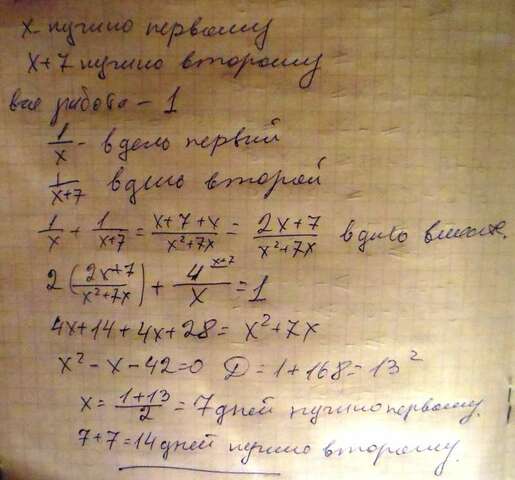 x нужно первому
x+7 нужно второму
вся работа - 1
1/x - в день первый
1/(x+7) в день второй
1/x + 1/(x+7) = (x+7+x)/(x²+7x) = (2x+7)/(x²+7x) в день вместе.
2((2x+7)/(x²+7x)) + 4/x ^(x+7) = 1
4x+14+4x+28 = x²+7x
x²-x-42=0 D=1+168=13²
x = (1+13)/2 = 7 дней нужно первому.
7+7=14 дней нужно второму.